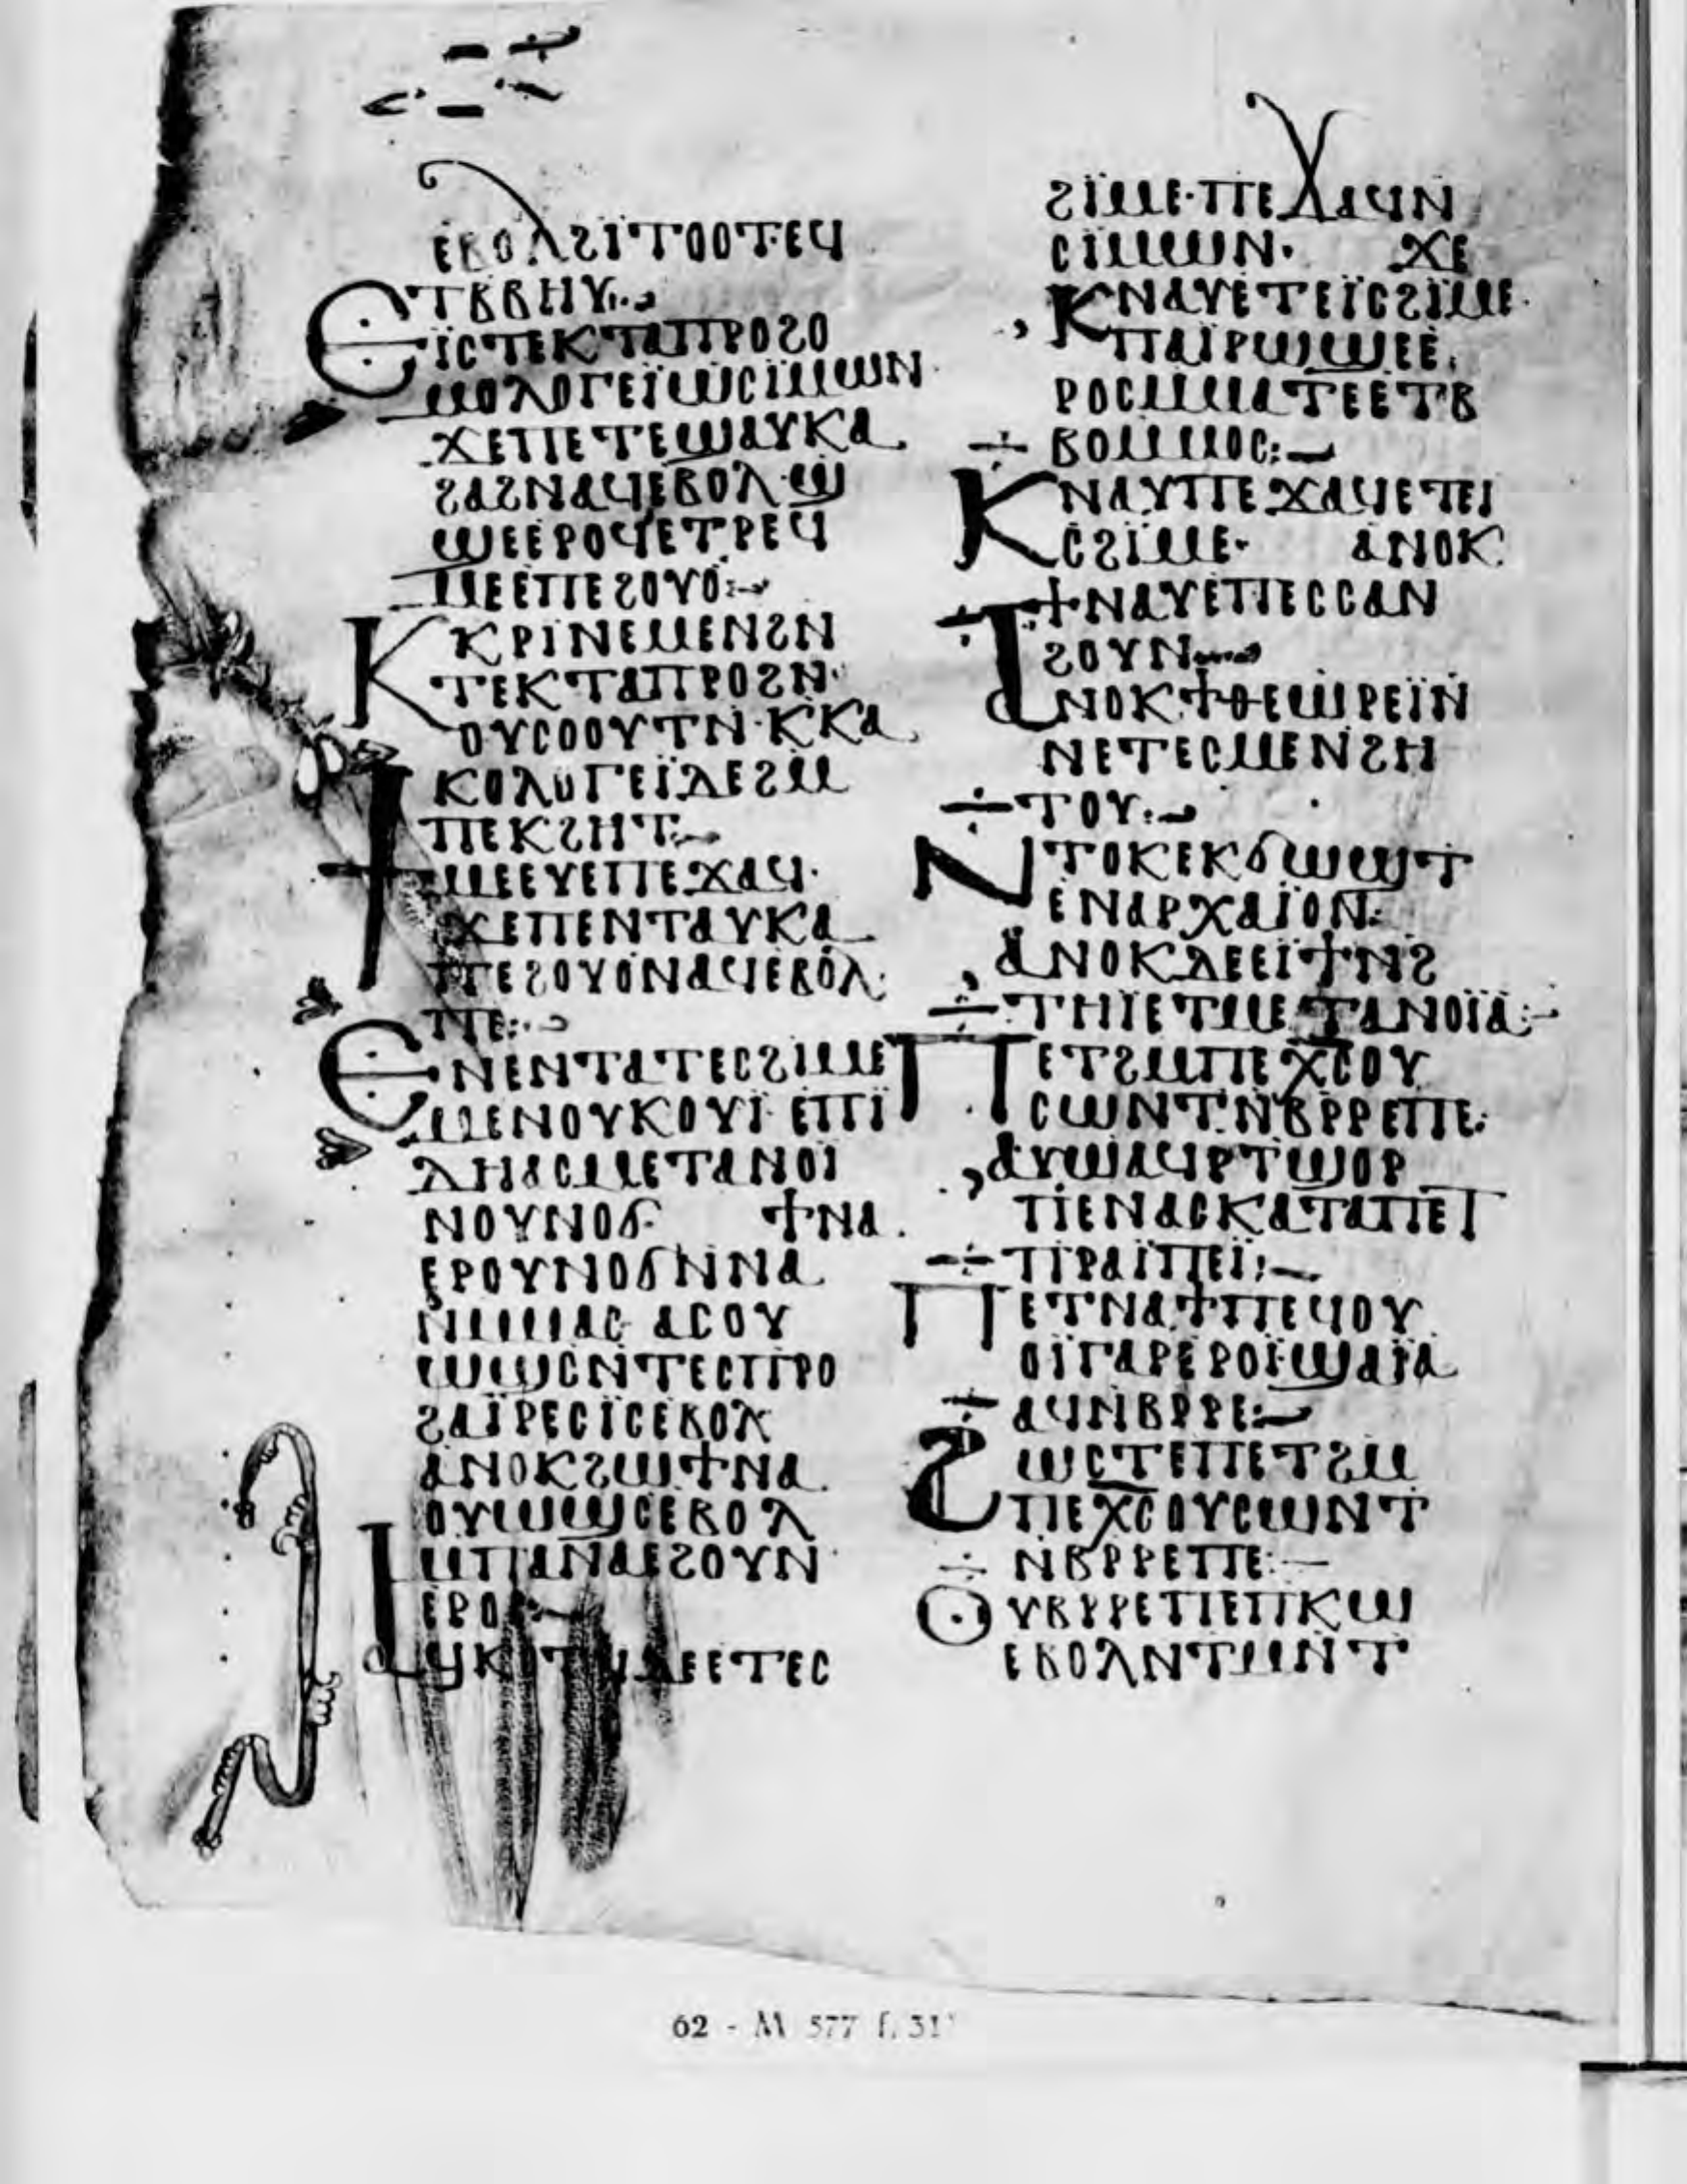 ⲉⲃⲟⲗϩⲓ̈ⲧⲟⲟⲧⲉϥ
ⲉⲧⲃⲃⲏⲩ
ⲉⲓ̈ⲥⲧⲉⲕⲧⲁⲡⲣⲟϩⲟ
ⲙⲟⲗⲟⲅⲉⲓ̈ⲱⲥⲓⲙⲱⲛ
ϫⲉⲡⲉⲧⲉϣⲁⲩⲕⲁ
ϩⲁϩⲛⲁϥⲉⲃⲟⲗ·ϣ
ϣⲉⲉⲣⲟϥⲉⲧⲣⲉϥ
ⲙⲉⲉⲡⲉϩⲟⲩⲟ:
ⲕⲕⲣⲓⲛⲉⲙⲉⲛϩⲛ
ⲧⲉⲕⲧⲁⲡⲣⲟϩⲛ·
ⲟⲩⲥⲟⲟⲩⲧⲛ·ⲕⲕⲁ
ⲕⲟⲗⲟⲅⲉⲓ̈ⲇⲉϩⲙ
ⲡⲉⲕϩⲏⲧ:
ϯⲙⲉⲉⲩⲉⲡⲉϫⲁϥ·
ϫⲉⲡⲉⲛⲧⲁⲩⲕⲁ
ⲡⲉϩⲟⲩⲟⲛⲁϥⲉⲃⲟⲗ·
ⲡⲉ:
ⲉⲛⲉⲛⲧⲁⲧⲉⲥϩⲓⲙⲉ
ⲙⲉⲛⲟⲩⲕⲟⲩⲓ̈ ⲉⲡⲓ̈
ⲇⲏⲁⲥⲙⲉⲧⲁⲛⲟⲓ
ⲛⲟⲩⲛⲟϭ· ϯⲛⲁ
ⲉⲣⲟⲩⲛⲟϭⲛⲛⲁ
ⲛⲙⲙⲁⲥ ⲁⲥⲟⲩ
ⲱϣⲥⲛⲧⲉⲥⲡⲣⲟ
ϩⲁⲓ̈ⲣⲉⲥⲓⲥⲉⲃⲟⲗ
ⲁⲛⲟⲕϩⲱϯⲛⲁ
ⲟⲩⲱϣⲥⲉⲃⲟⲗ
ⲙⲡⲁⲛⲁⲉϩⲟⲩⲛ
ⲉⲣⲟⲥ:
ⲁϥⲕⲟⲧϥⲇⲉⲉⲧⲉⲥ
ϩⲓ̈ⲙⲉ·ⲡⲉϫⲁϥⲛ
ⲥⲓⲙⲱⲛ· ϫⲉ
ⲕⲛⲁⲩⲉⲧⲉⲓ̈ⲥϩⲓ̈ⲙⲉ·
ⲡⲁⲓ̈ⲣⲱϣⲉⲉ
ⲣⲟⲥⲙⲙⲁⲧⲉⲉⲧⲃ
ⲃⲟⲙⲙⲟⲥ:
ⲕⲛⲁⲩⲡⲉϫⲁϥⲉⲧⲉⲓ
ⲥϩⲓ̈ⲙⲉ· ⲁⲛⲟⲕ
ϯⲛⲁⲩⲉⲡⲉⲥⲥⲁⲛ
ϩⲟⲩⲛ
ⲁⲛⲟⲕϯⲑⲉⲱⲣⲉⲓ̈ⲛ
ⲛⲉⲧⲉⲥⲙⲉⲛϩⲏ
ⲧⲟⲩ:
ⲛⲧⲟⲕⲉⲕϭⲱϣⲧ
ⲉⲛⲁⲣⲭⲁⲓ̈ⲟⲛ:
ⲁⲛⲟⲕⲇⲉⲉⲓ̈ϯⲛϩ
ⲧⲏⲓ̈ⲉⲧⲙⲉⲧⲁⲛⲟⲓ̈ⲁ:
ⲡⲉⲧϩⲙⲡⲉⲭⲥⲟⲩ
ⲥⲱⲛⲧⲛⲃⲣⲣⲉⲡⲉ:
ⲁⲩⲱⲁϥⲣⲧϣⲟⲣ
ⲡⲓⲉⲛⲁⲥⲕⲁⲧⲁⲡⲉⲧ
ⲡⲣⲁⲓ̈ⲡⲉⲓ̈:
ⲡⲉⲧⲛⲁϯⲡⲉϥⲟⲩ
ⲟⲓ̈ⲅⲁⲣⲉⲣⲟⲓ̈ϣⲁⲓ̈ⲁ
ⲁϥⲛⲃⲣⲣⲉ:
ϩⲱⲥⲧⲉⲡⲉⲧϩⲙ
ⲡⲉⲭⲥⲟⲩⲥⲱⲛⲧ
ⲛⲃⲣⲣⲉⲡⲉ:
ⲟⲩⲃⲣⲣⲉⲡⲉⲡⲕⲱ
ⲉⲃⲟⲗⲛⲧⲙⲛⲧ
62 - M 577 f. 31